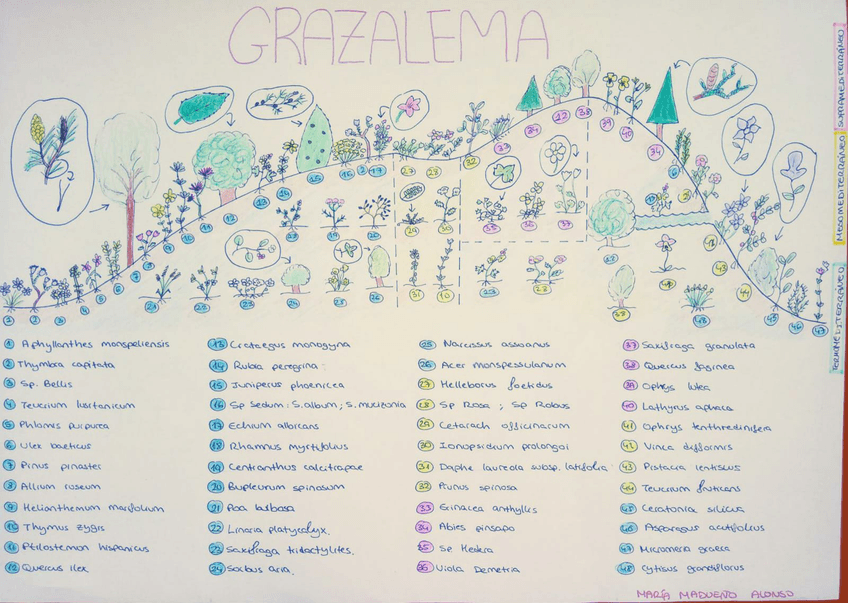 GRAZALEMA
SUPRAMEDITERRÁNEO
MESOMEDITERRÁNEO
TERMOMEDITERRÁNEO
1 Aphyllanthes monspeliensis
2 Thymbra capitata
3 Sp. Bellis
4 Teucrium lusitanicum
5 Phlomis purpurea
6 Ulex baeticus
7 Pinus pinaster
8 Allium roseum
9 Helianthemum marifolium
10 Thymus zygis
11 Ptilostemon hispanicus
12 Quercus ilex
13 Crataegus monogyna
14 Rubia peregrina
15 Juniperus phoenicea
16 Sp Sedum: S. album; S. mucizonia
17 Echium albicans
18 Rhamnus myrtifolius
19 Centranthus calcitrapae
20 Bupleurum spinosum
21 Poa bulbosa
22 Linaria platycalyx.
23 Saxifraga tridactylites.
24 Sorbus aria.
25 Narcissus assoanus
26 Acer monspessulanum
27 Helleborus foetidus
28 Sp Rosa; Sp Rubus
29 Cetarach officinarum
30 Ionopsidium prolongoi
31 Daphe laureola subsp. latifolia
32 Prunus spinosa
33 Erinacea anthyllis
34 Abies pinsapo
35 Sp Hedera
36 Viola Demetria
37 Saxifraga granulata
38 Quercus faginea
39 Ophrys lutea
40 Lathyrus aphaca
41 Ophrys tenthredinifera
42 Vinca difformis
43 Pistacia lentiscus
44 Teucrium fruticans
45 Ceratonia siliqua
46 Asparagus acutifolius
47 Micromeria graeca
48 Cytisus grandiflorus
MARÍA MADUEÑO ALONSO